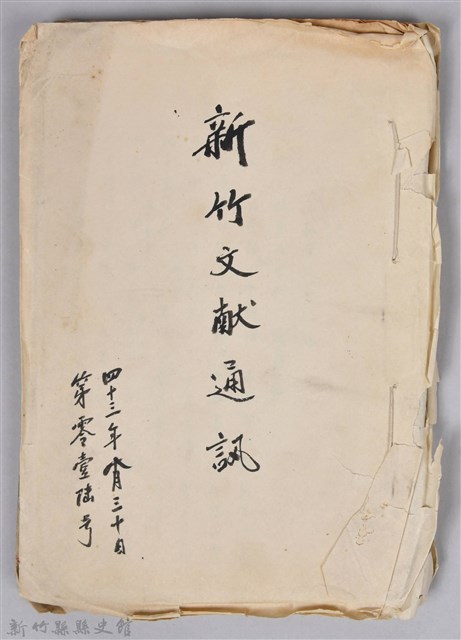 新竹文献通訊
四十三年六月三十日
第零壹陸号
新竹縣縣史館